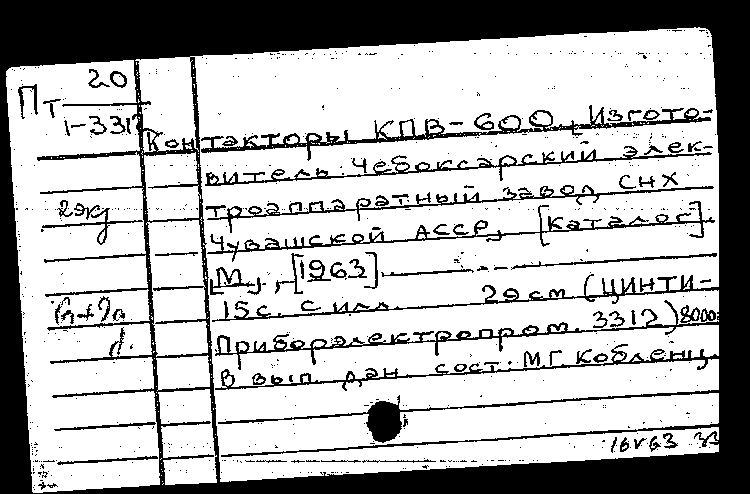 Пт 20
1-3312
Контакторы КПВ-600. Изгото-
витель: Чебоксарский элек-
троаппаратный завод СНХ
2 экз
Чувашской АССР, [Каталог].
[М.], [1963].
15 с. с илл. 29 см (ЦИНТИ-
Приборэлектропром. 3312) 8000
В вып. дан. сост: М.Г. Кобленц.
16 V 63 33